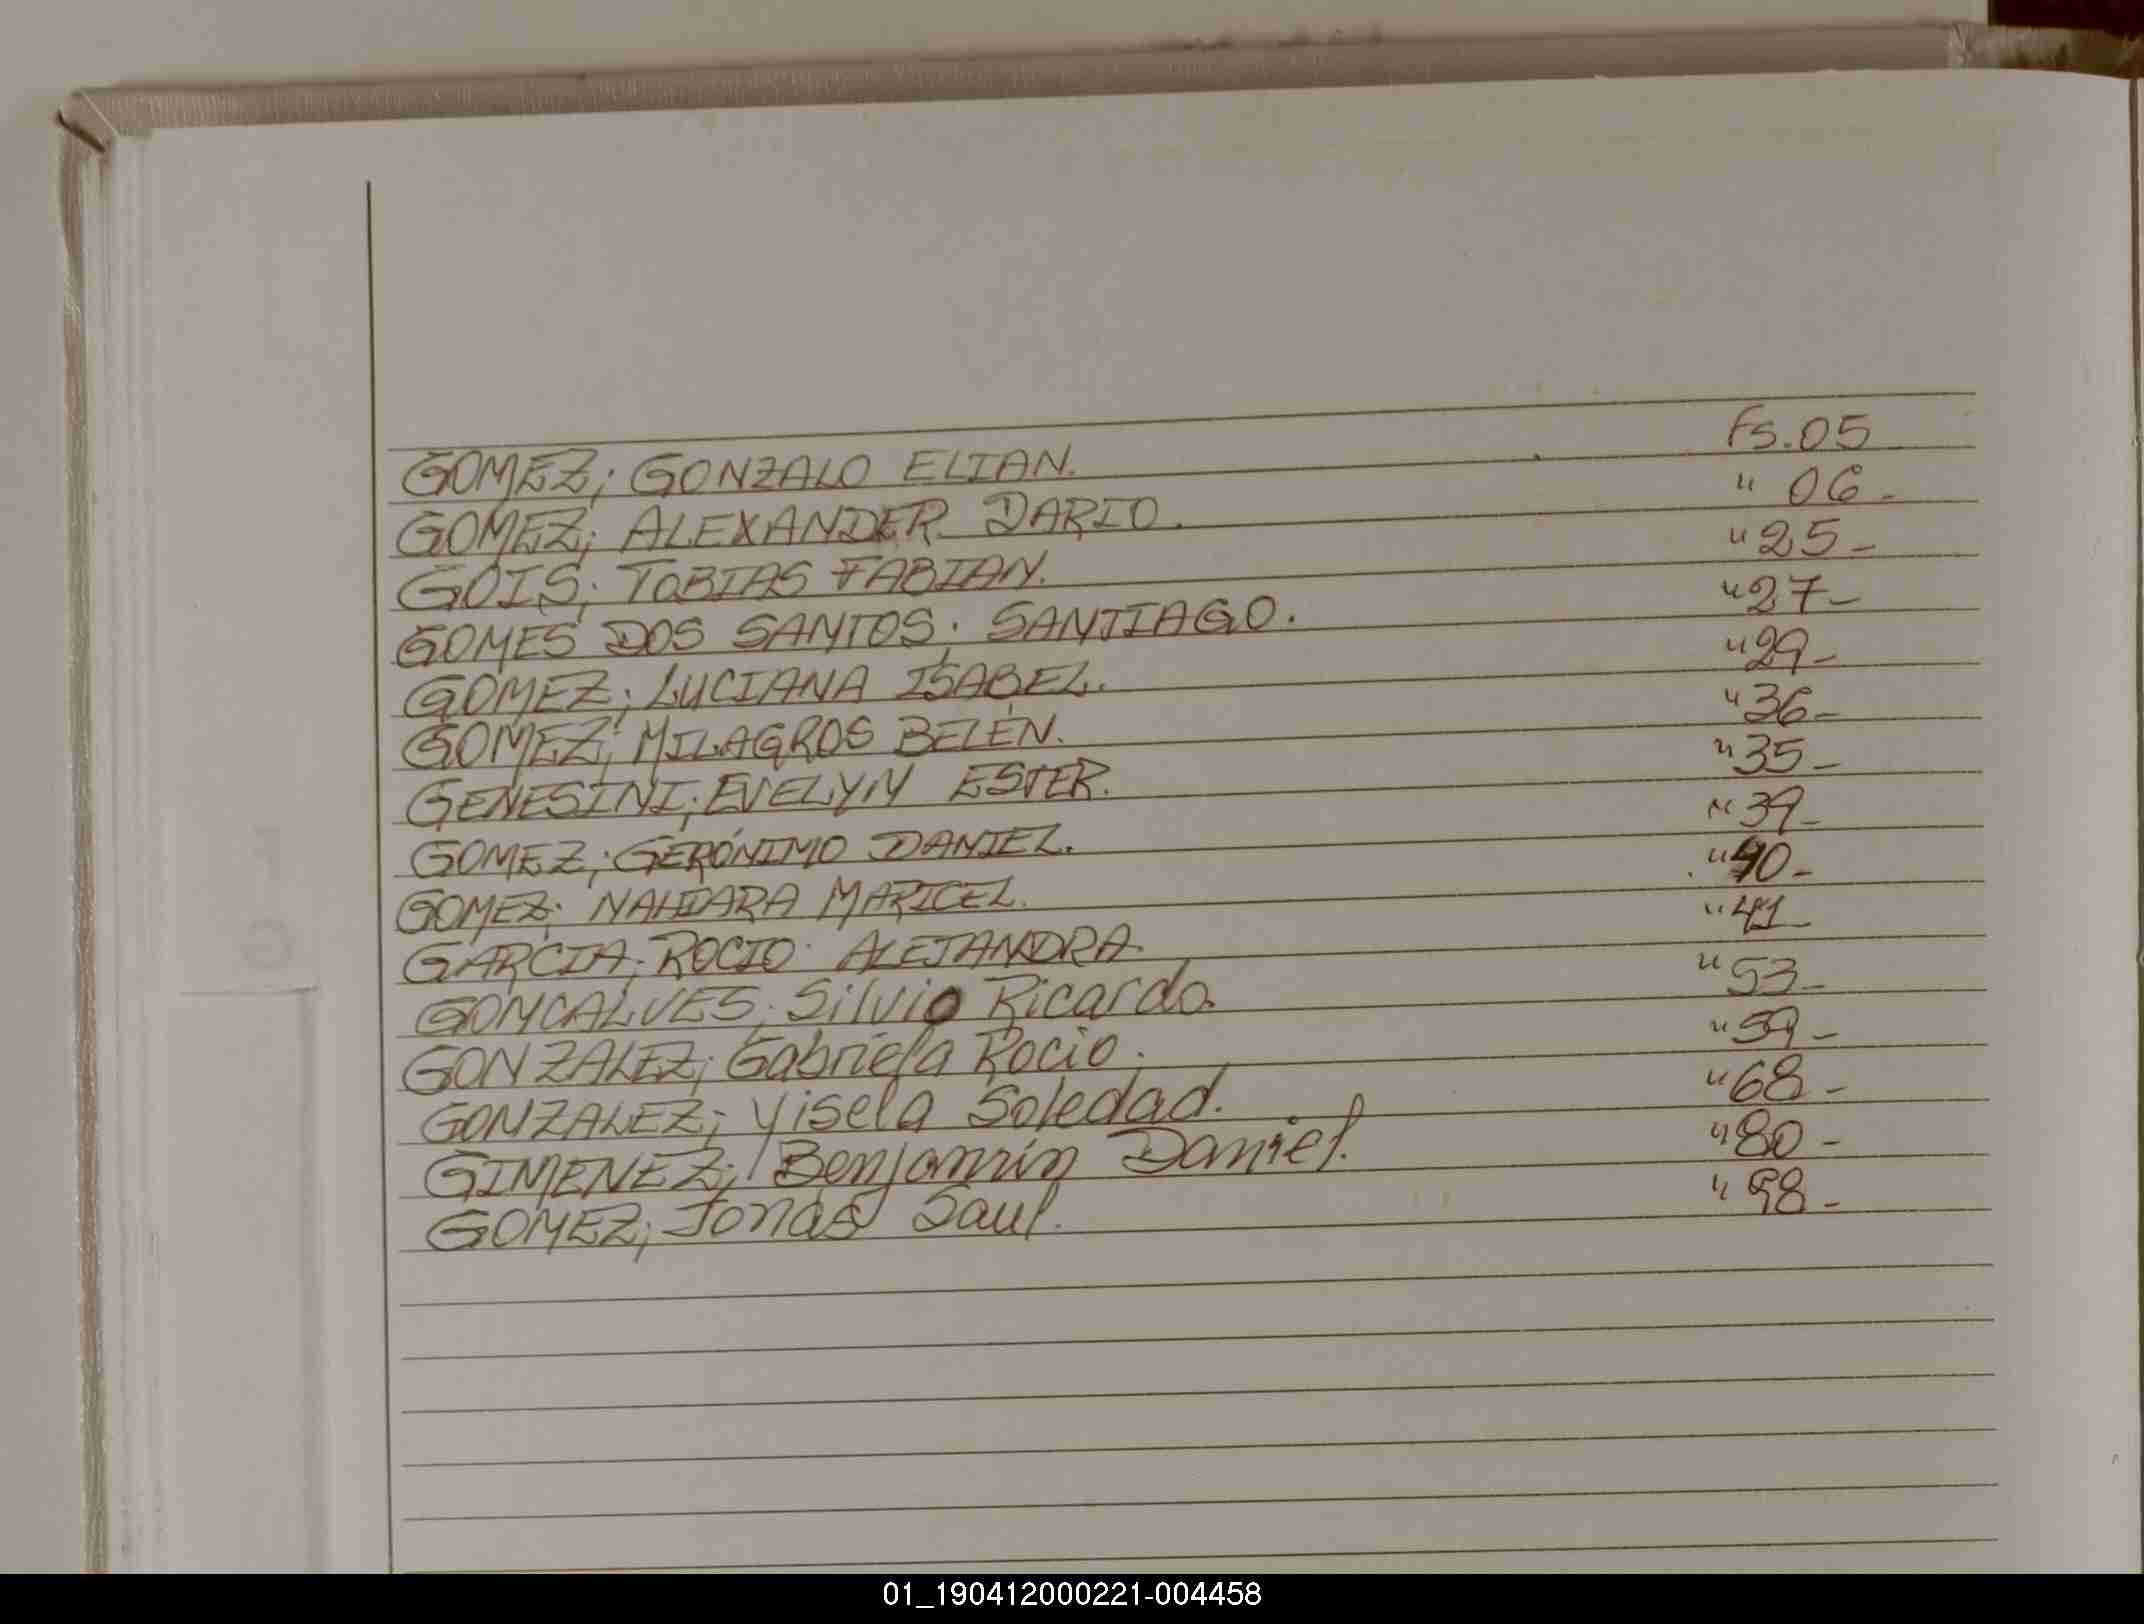 GOMEZ; GONZALO ELIAN. Fs. 05
GOMEZ; ALEXANDER DARIO. " 06-
GOIS; TOBIAS FABIAN. " 25-
GOMES DOS SANTOS; SANTIAGO. " 27-
GOMEZ; LUCIANA ISABEL. " 29-
GOMEZ; MILAGROS BELÉN. " 36-
GENESINI; EVELYN ESTER. " 35-
GOMEZ; GERÓNIMO DANIEL. " 39-
GOMEZ; NAHIARA MARICEL. " 40-
GARCIA; ROCIO ALEJANDRA. " 41-
GONCALVES; Silvio Ricardo. " 53-
GONZALEZ; Gabriela Rocio. " 59-
GONZALEZ; Yisela Soledad. " 68-
GIMENEZ; Benjamín Daniel. " 80-
GOMEZ; Jonás Saul. " 98-
G
01_190412000221-004458